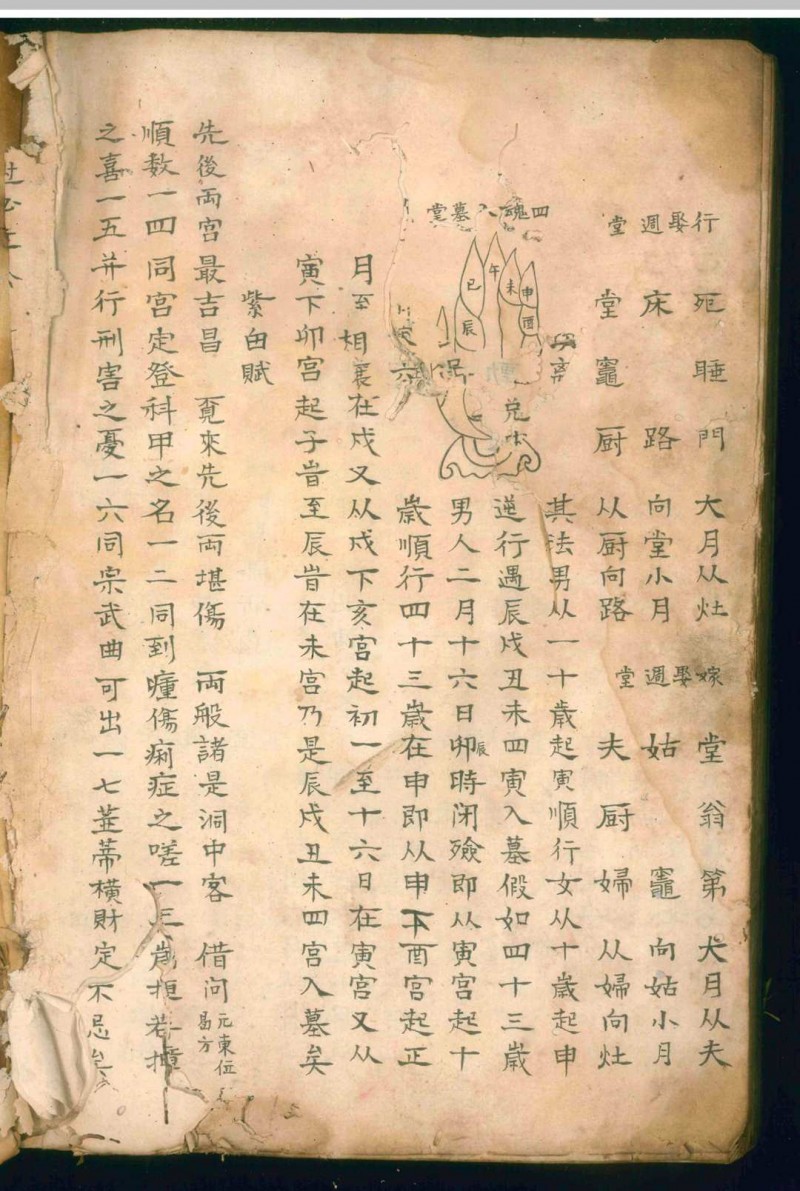 行娶週堂
死睡門
床路
堂竈厨
大月从灶
向堂小月
从厨向路
嫁娶週堂
堂翁第
姑竈
夫厨婦
大月从夫
向姑小月
从婦向灶
四魂入墓堂
申
酉
未
午
巳
辰
兌
其法男从一十歳起寅順行女从十歳起申
逆行遇辰戌丑未四寅入墓假如四十三歳
男人二月十六日卯辰時闭殮即从寅宫起十
歳順行四十三歳在申即从申下酉宫起正
月至相襄在戌又从戌下亥宫起初一至十六日在寅宫又从
寅下卯宫起子旹至辰旹在未宫乃是辰戌丑未四宫入墓矣
紫白賦
先後両宫最吉昌 覔來先後両堪傷 両般諸是洞中客 借问元東位曷方
順数一四同宫定登科甲之名一二同到瘇傷痢症之嗟一三
之喜一五并行刑害之憂一六同宗武曲可出一七並蒂横財定不忌矣